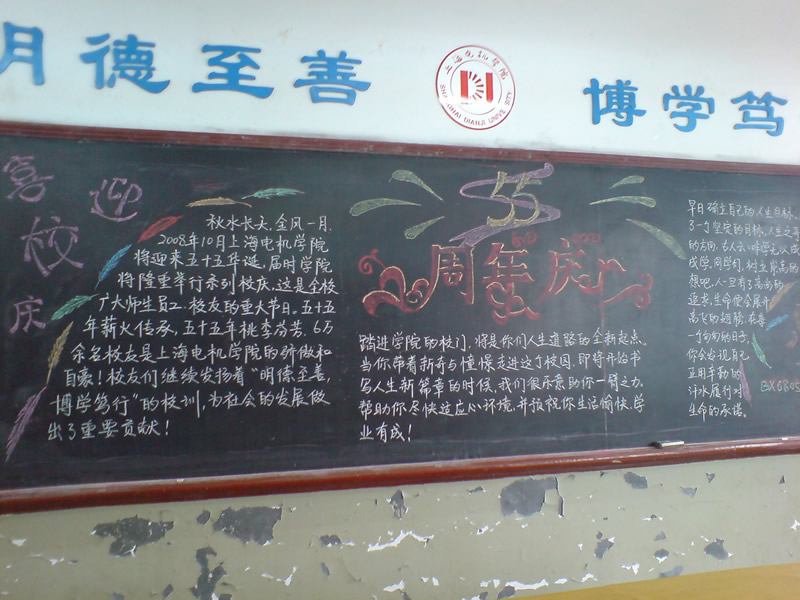 明德至善
上海电机学院
SHANGHAI DIANJI UNIVERSITY
博学笃
喜迎
校
庆
秋水长天,金风一月.
2008年10月上海电机学院
将迎来五十五华诞,届时学院
将隆重举行系列校庆.这是全校
广大师生员工.校友的重大节日.五十五
年薪火传承,五十五年桃李芬芳.6万
余名校友是上海电机学院的骄傲和
自豪!校友们继续发扬着“明德至善,
博学笃行”的校训,为社会的发展做
出了重要贡献!
55
周年庆
踏进学院的校门,将是你们人生道路的全新起点.
当你带着新奇与憧憬走进这个校园.即将开始书
写人生新篇章的时候.我们很乐意助你一臂之力.
帮助你尽快适应心环境,并预祝你生活愉快.学
业有成!
早日确立自己的人生目标.
了一个坚定的目标.人生之
的方向.古人云:学无
成学.同学们.树立崇高的
想吧.人一旦有了高尚的
追求,生命便会展开
高飞的翅膀.在每
一个匆匆的日子.
你会发现自己
正用辛勤的
汗水履行对
生命的承诺.